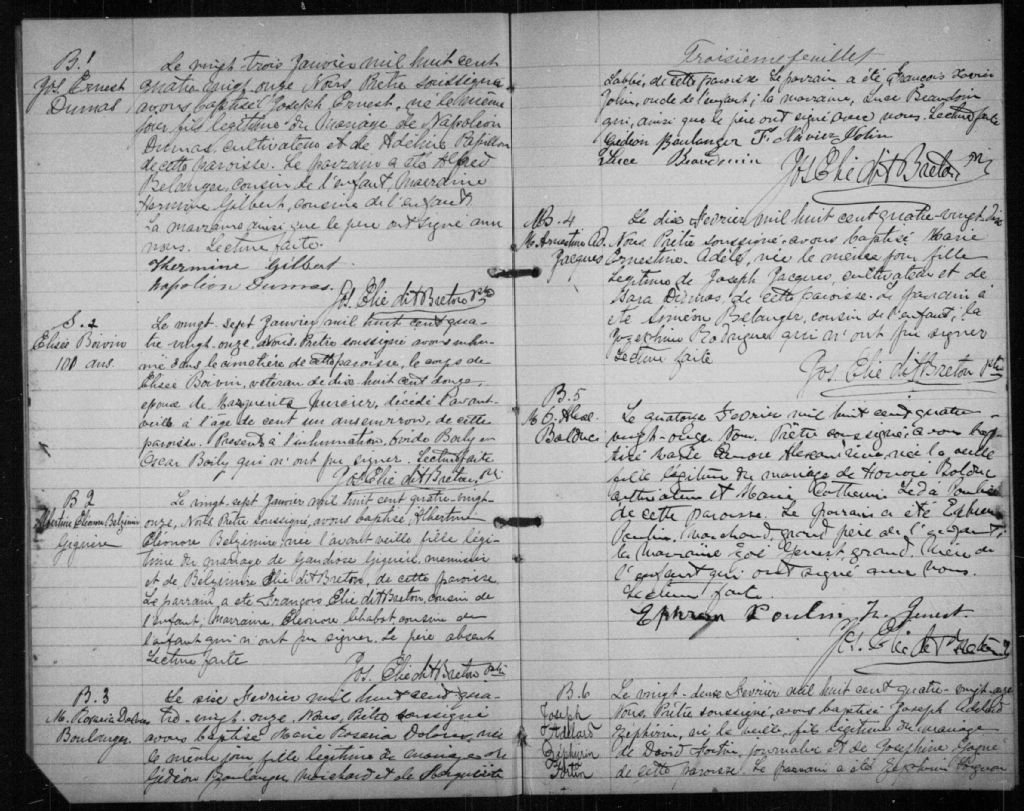 B. 1
Jos. Ernest
Dumas
Le vingt-trois Janvier mil huit cent
quatre vingt onze Nous Prêtre soussigné
avons baptisé Joseph Ernest, né le même
jour fils légitime du mariage de Napoléon
Dumas, cultivateur et de Adeline Papillon
de cette paroisse. Le parrain a été Alfred
Belanger, cousin de l'enfant, marraine
Hermine Gilbert, cousine de l'enfant
La marraine ainsi que le père ont signé avec
nous. Lecture faite.
Thermine Gilbert
Napoleon Dumas.
Jos. Elie dit Breton Ptre
S. 2
Elisée Boivin
100 ans.
Le vingt-sept Janvier mil huit cent qua-
tre vingt-onze, Nous Prêtre soussigné avons inhu-
mé dans le cimetière de cette paroisse, le corps de
Elisée Boivin, vétéran de dix huit cent douze,
époux de Marguerite Mercier, décédé l'avant
veille à l'âge de cent un ans environ, de cette
paroisse. Présents à l'inhumation, Ovide Boily et
Oscar Boily qui n'ont pu signer. Lecture faite
Jos Elie dit Breton, Ptre
B 2
Albertine Eléonore Belzémire
Giguère
Le vingt-sept Janvier mil huit cent quatre-vingt-
onze, Nous Prêtre soussigné, avons baptisé, Albertine
Eléonore Belzémire, née l'avant veille fille légi-
time du mariage de Gaudiose Giguère, menuisier
et de Belzémire Elie dit Breton, de cette paroisse.
Le parrain a été François Elie dit Breton, cousin de
l'enfant; marraine, Eléonore Chabot, cousine de
l'enfant qui n'ont pu signer. Le père absent
Lecture faite
Jos. Elie dit Breton Ptre
B. 3
M. Rosaria Dolores
Boulanger.
Le six Fevrier mil huit cent qua-
tre-vingt-onze. Nous, Prêtre soussigné
avons baptisé Marie Rosaria Dolores, née
le même jour fille légitime du mariage de
Gédéon Boulanger, marchand et de Marguerite
Troisième feuillet
Labbé, de cette paroisse Le parrain a été François Xavier
Jolin, oncle de l'enfant; la marraine, Luce Beaudoin
qui, ainsi que le père ont signé avec nous. Lecture faite
Gédéon Boulanger F. Xavier Jolin
Luce Beaudouin
Jos Elie dit Breton Ptre
B. 4
M. Ernestine Ad.
Jacques
Le dix Fevrier mil huit cent quatre-vingt-onze
Nous Prêtre soussigné avons baptisé Marie
Ernestine Adèle, née le même jour fille
légitime de Joseph Jacques, cultivateur et de
Sara Dumas, de cette paroisse. Le parrain à
été Siméon Belanger, cousin de l'enfant; la
Josephine Rodrigue qui n'ont pu signer
Lecture faite
Jos. Elie dit Breton Ptre
B. 5
Bolduc
Le quatorze Fevrier mil huit cent quatre-
vingt-onze Nous, Prêtre soussigné, avons bap-
tisé Marie Léonore Alexandrina, née la veille
fille légitime du mariage de Honoré Bolduc
cultivateur et Marie Catherine Léda Poulin
de cette paroisse. Le parrain a été Ephrem
Poulin, marchand, grand père de l'enfant;
la marraine Zoé Genest, grand mère de
l'enfant qui ont signé avec nous.
Lecture faite.
Ephrem Poulin Genest.
Jos. Elie dit Breton
B. 6
Joseph
Adelard
Zéphirin
Fortin
Le vingt-deux Fevrier mil huit cent quatre-vingt-onze
Nous, Prêtre soussigné, avons baptisé Joseph Adelard
Zéphirin, né la veille, fils légitime du mariage
de David Fortin, journalier et de Josephine Gagné
de cette paroisse. Le parrain a été Zéphirin